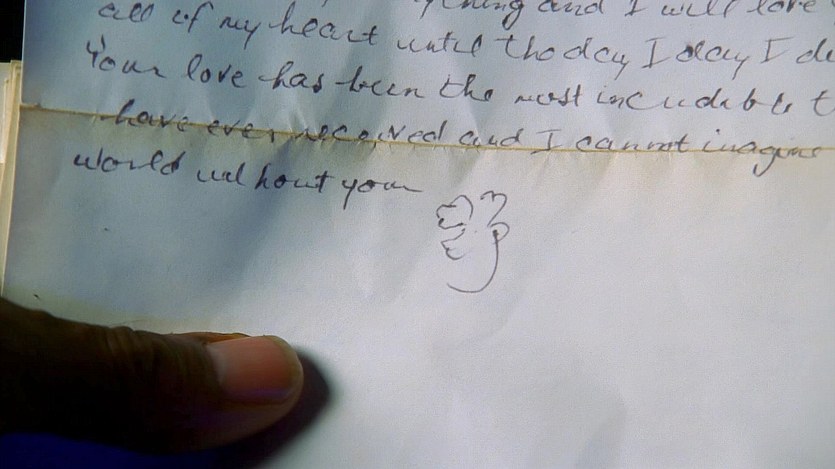 and I will love
all of my heart until the day I day I
Your love has been the most incudable
have ever received and I cannot imagine
world without you